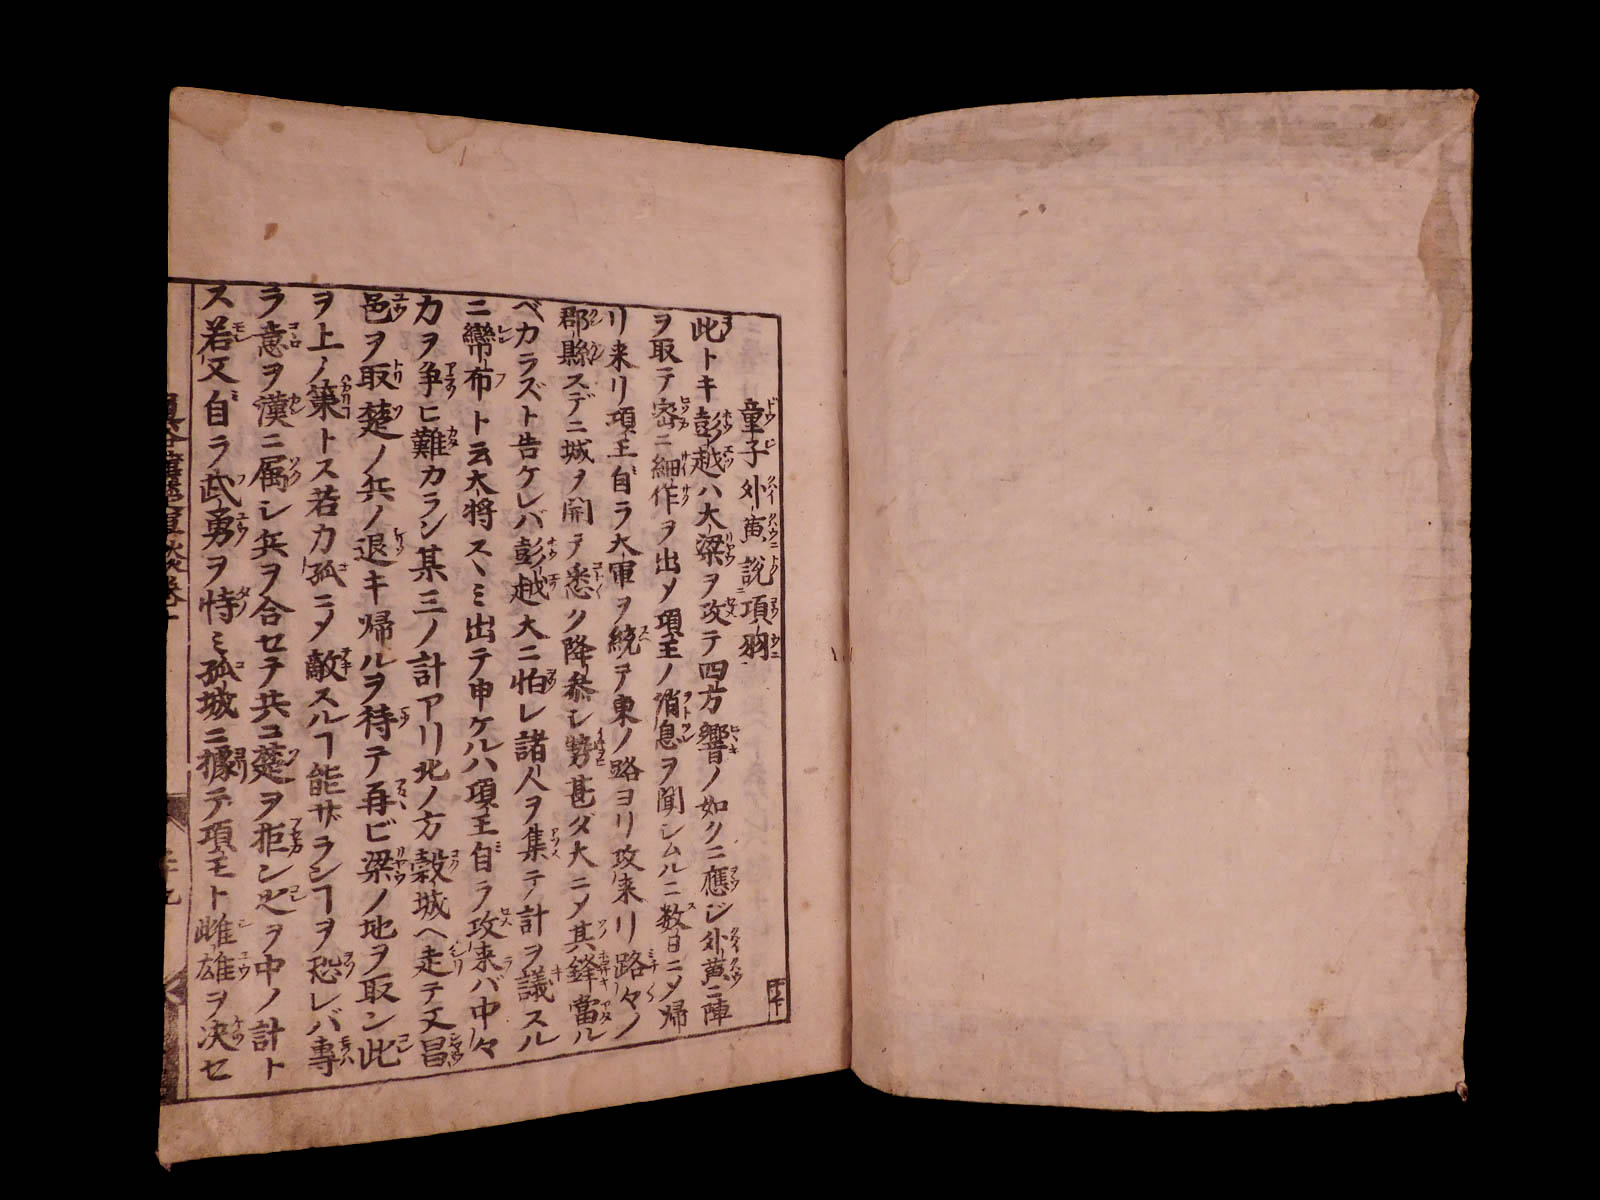 童子外黄説項羽
此トキ彭越ハ大梁ヲ攻テ四方響ノ如クニ應ジ外黄ニ陣
ヲ取テ密ニ細作ヲ出メ項王ノ消息ヲ聞シムルニ数日ニメ帰
リ来リ項王自ラ大軍ヲ統ヲ東ノ路ヨリ攻来リ路々ノ
郡縣スデニ城ヲ開テ悉ク降参シ勢甚ダ大ニメ其鋒當ル
ベカラズト告ケレバ彭越大ニ怕レ諸人ヲ集テ計ヲ議スル
ニ欒布ト云大将スヽミ出テ申ケルハ項王自ラ攻来バ中々
力ヲ争ヒ難カラン某三ノ計アリ北ノ方穀城ヘ走テ文昌
邑ヲ取楚ノ兵ノ退キ帰ルヲ待テ再ビ梁ノ地ヲ取ン此
ヲ上ノ策トス若力孤ニメ敵スルヿ能ザランヿヲ恐レバ専
ラ意ヲ漢ニ属シ兵ヲ合セテ共ニ楚ヲ拒ン之ヲ中ノ計ト
ス若又自ラ武勇ヲ恃ミ孤城ニ據テ項王ト雌雄ヲ決セ